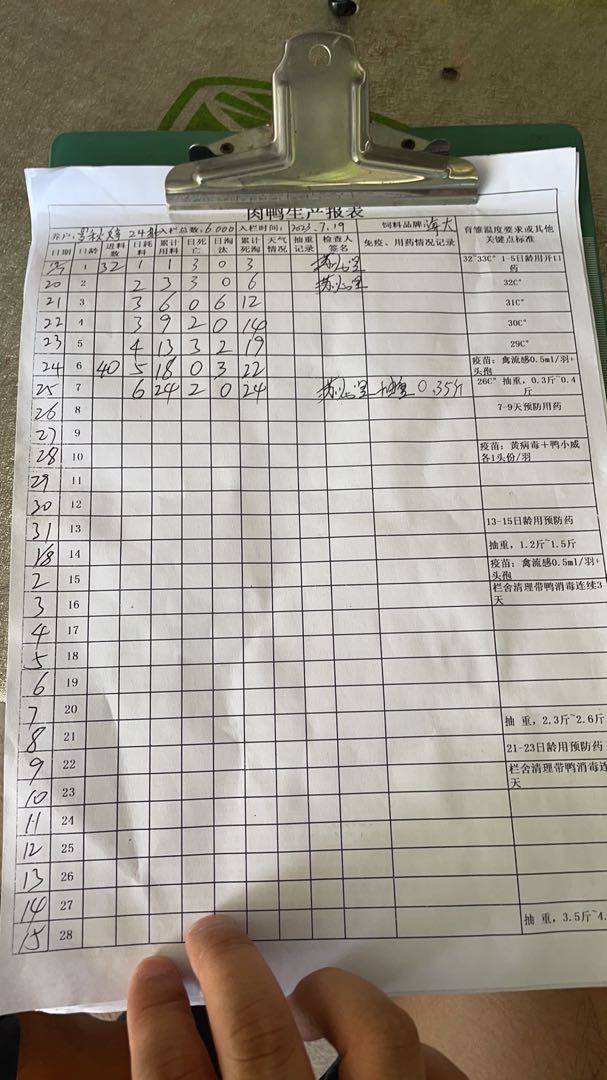 肉鸭生产报表
养户: 24 入栏总数:6000 入栏时间:2023.7.19 饲料品牌:海大
日期 日龄 进料数 日耗料 累计用料 日死亡 日淘汰 累计死淘 天气情况 抽重记录 检查人签名 免疫、用药情况记录 育雏温度要求或其他关键点标准
1 32 1 1 3 0 3 32~33C° 1-5日龄用开口药
20 2 2 3 3 0 6 32C°
21 3 3 6 0 6 12 31C°
22 4 3 9 2 0 14 30C°
23 5 4 13 3 2 19 29C°
24 6 40 5 18 0 3 22 疫苗：禽流感0.5ml/羽+头孢
25 7 6 24 2 0 24 抽重 0.35斤 26C° 抽重，0.3斤~0.4斤
26 8 7-9天预防用药
27 9
28 10 疫苗：黄病毒＋鸭小威各1头份/羽
29 11
30 12
31 13 13-15日龄用预防药
14 抽重，1.2斤~1.5斤
2 15 疫苗：禽流感0.5ml/羽+头孢
3 16 栏舍清理带鸭消毒连续3天
4 17
5 18
6 19
7 20
8 21 抽 重，2.3斤~2.6斤
9 22 21-23日龄用预防药
10 23 栏舍清理带鸭消毒连天
11 24
12 25
13 26
14 27
15 28 抽 重，3.5斤~4.